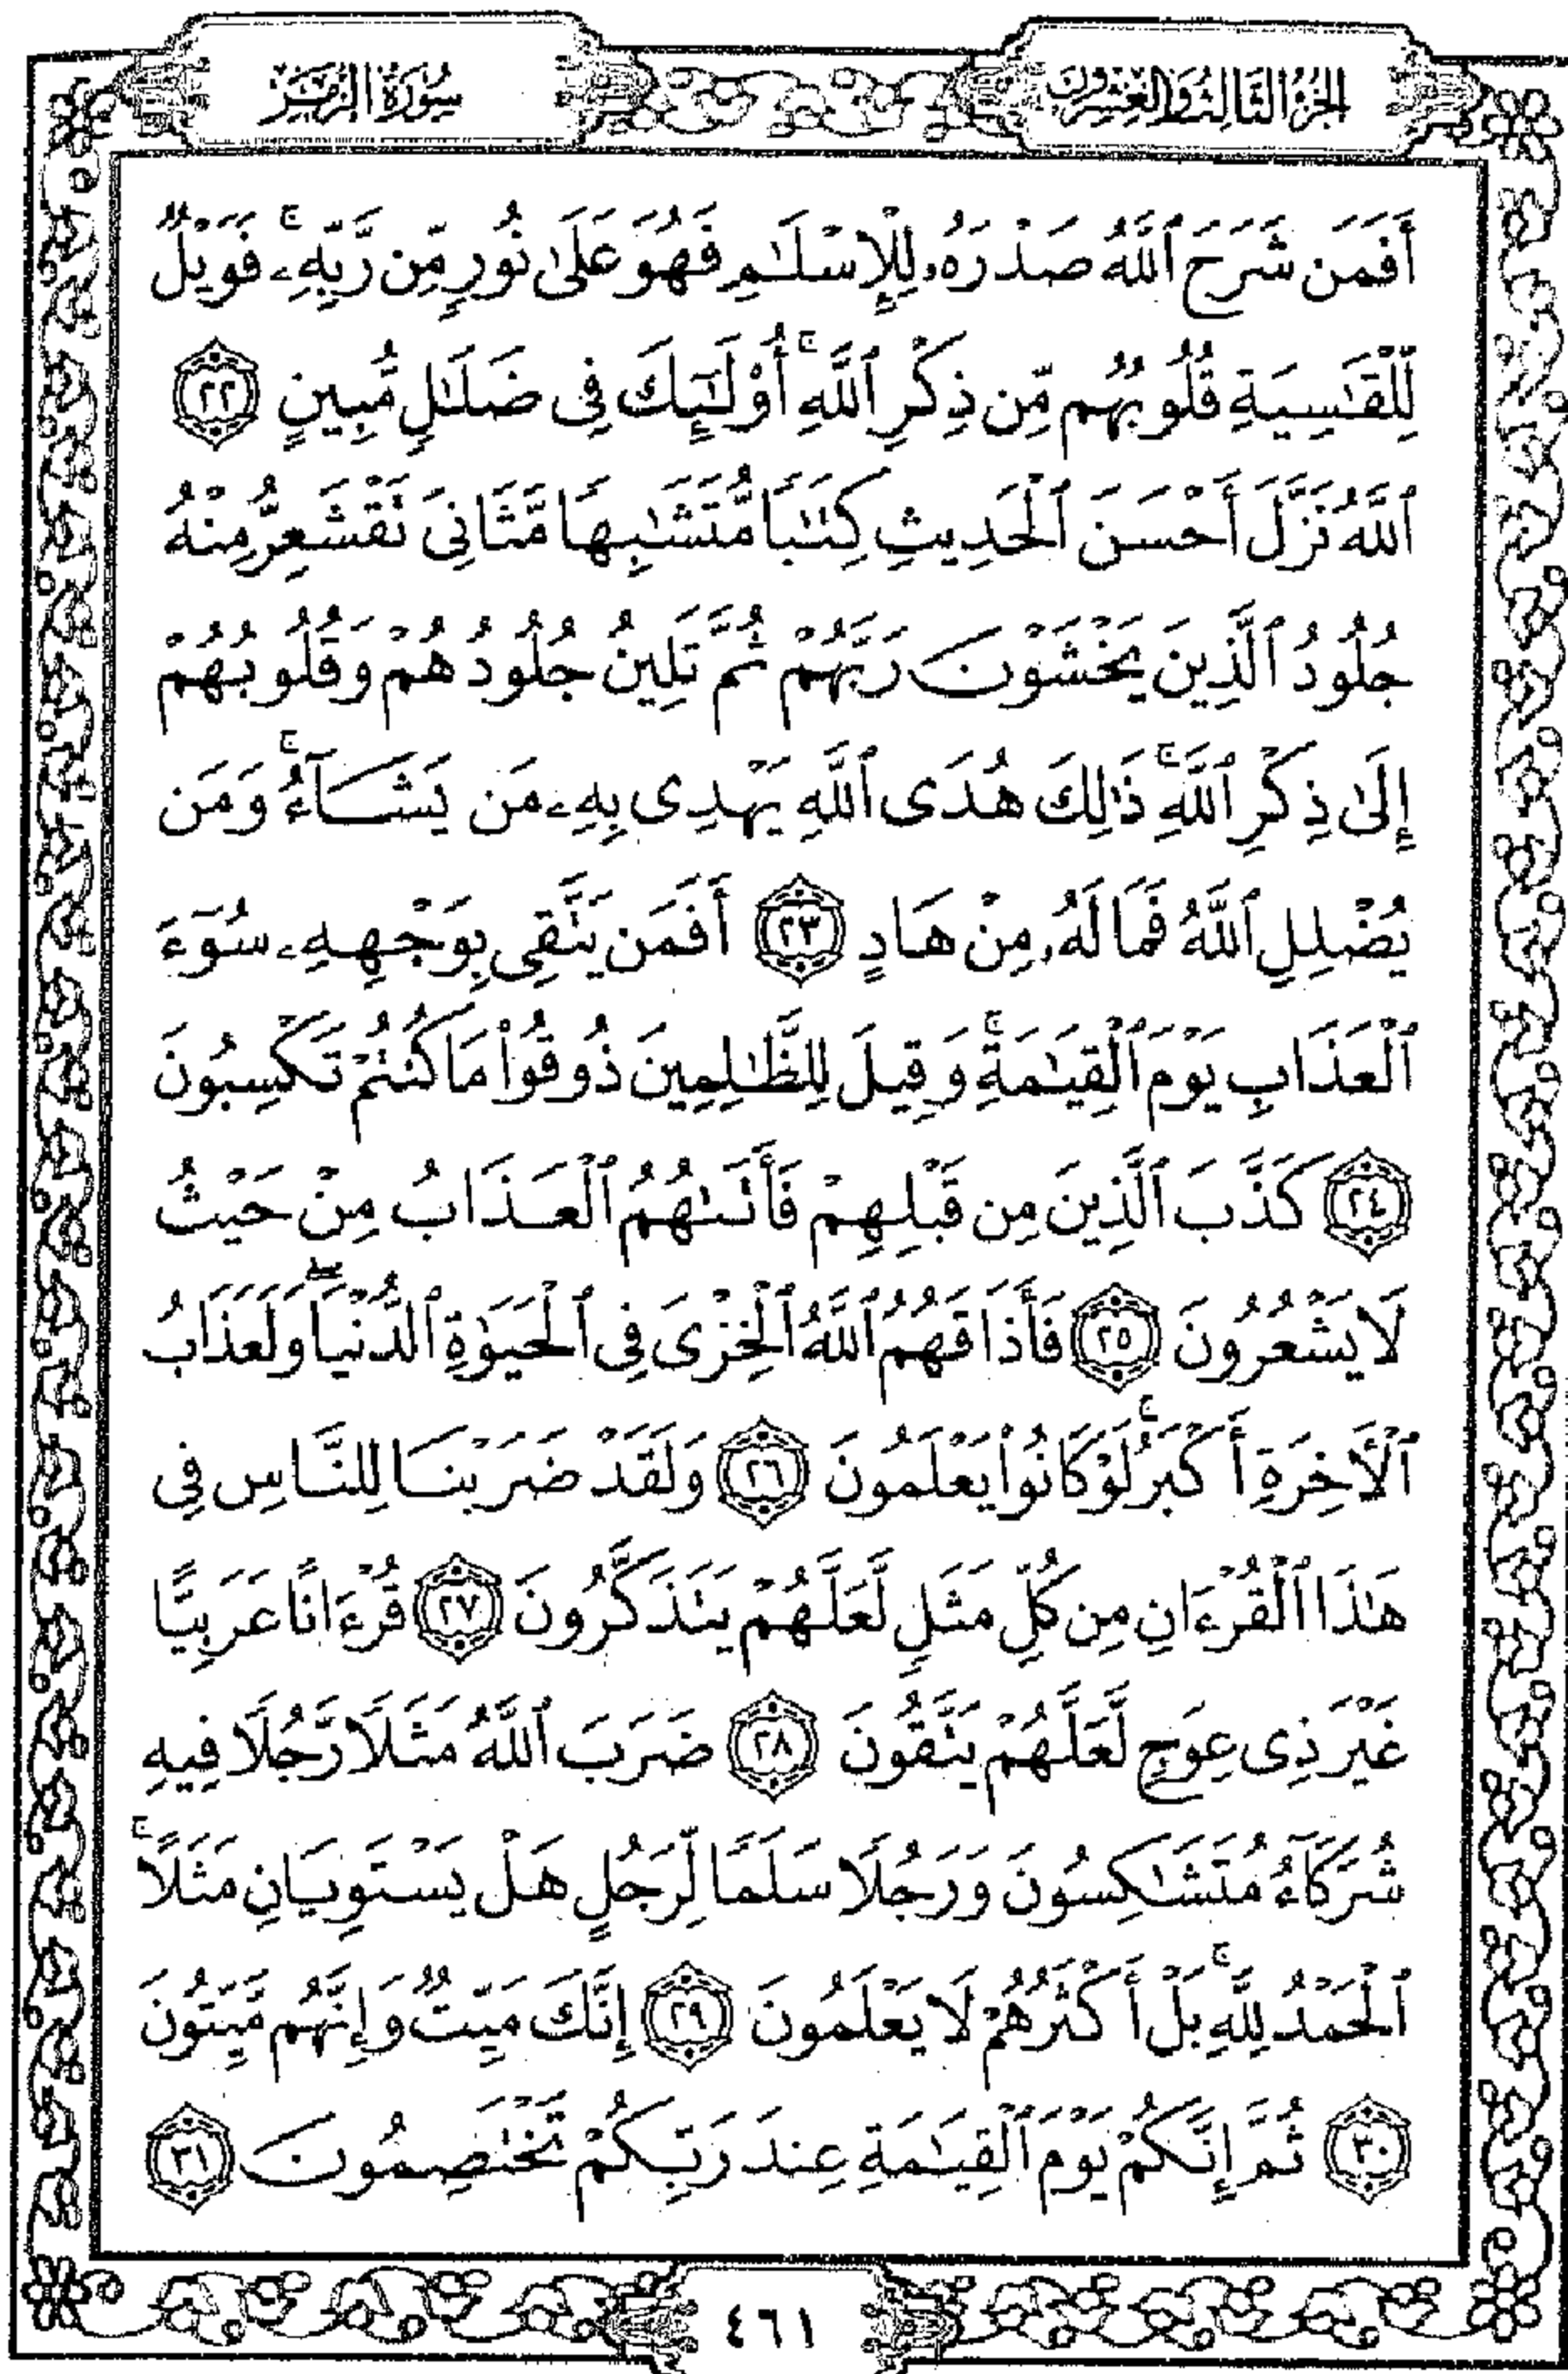 الجزء الثالث والعشرون
سورة الزمر
أَفَمَن شَرَحَ ٱللَّهُ صَدْرَهُۥ لِلْإِسْلَٰمِ فَهُوَ عَلَىٰ نُورٍ مِّن رَّبِّهِۦۚ فَوَيْلٌ
لِّلْقَٰسِيَةِ قُلُوبُهُم مِّن ذِكْرِ ٱللَّهِۚ أُوْلَٰٓئِكَ فِى ضَلَٰلٍ مُّبِينٍ ٢٢
ٱللَّهُ نَزَّلَ أَحْسَنَ ٱلْحَدِيثِ كِتَٰبًا مُّتَشَٰبِهًا مَّثَانِىَ تَقْشَعِرُّ مِنْهُ
جُلُودُ ٱلَّذِينَ يَخْشَوْنَ رَبَّهُمْ ثُمَّ تَلِينُ جُلُودُهُمْ وَقُلُوبُهُمْ
إِلَىٰ ذِكْرِ ٱللَّهِۚ ذَٰلِكَ هُدَى ٱللَّهِ يَهْدِى بِهِۦ مَن يَشَآءُۚ وَمَن
يُضْلِلِ ٱللَّهُ فَمَا لَهُۥ مِنْ هَادٍ ٢٣ أَفَمَن يَتَّقِى بِوَجْهِهِۦ سُوٓءَ
ٱلْعَذَابِ يَوْمَ ٱلْقِيَٰمَةِۚ وَقِيلَ لِلظَّٰلِمِينَ ذُوقُوا۟ مَا كُنتُمْ تَكْسِبُونَ
٢٤ كَذَّبَ ٱلَّذِينَ مِن قَبْلِهِمْ فَأَتَىٰهُمُ ٱلْعَذَابُ مِنْ حَيْثُ
لَا يَشْعُرُونَ ٢٥ فَأَذَاقَهُمُ ٱللَّهُ ٱلْخِزْىَ فِى ٱلْحَيَوٰةِ ٱلدُّنْيَاۖ وَلَعَذَابُ
ٱلْأَخِرَةِ أَكْبَرُۚ لَوْ كَانُوا۟ يَعْلَمُونَ ٢٦ وَلَقَدْ ضَرَبْنَا لِلنَّاسِ فِى
هَٰذَا ٱلْقُرْءَانِ مِن كُلِّ مَثَلٍ لَّعَلَّهُمْ يَتَذَكَّرُونَ ٢٧ قُرْءَانًا عَرَبِيًّا
غَيْرَ ذِى عِوَجٍ لَّعَلَّهُمْ يَتَّقُونَ ٢٨ ضَرَبَ ٱللَّهُ مَثَلًا رَّجُلًا فِيهِ
شُرَكَآءُ مُتَشَٰكِسُونَ وَرَجُلًا سَلَمًا لِّرَجُلٍ هَلْ يَسْتَوِيَانِ مَثَلًاۚ
ٱلْحَمْدُ لِلَّهِۚ بَلْ أَكْثَرُهُمْ لَا يَعْلَمُونَ ٢٩ إِنَّكَ مَيِّتٌ وَإِنَّهُم مَّيِّتُونَ
٣٠ ثُمَّ إِنَّكُمْ يَوْمَ ٱلْقِيَٰمَةِ عِندَ رَبِّكُمْ تَخْتَصِمُونَ ٣١
٤٦١